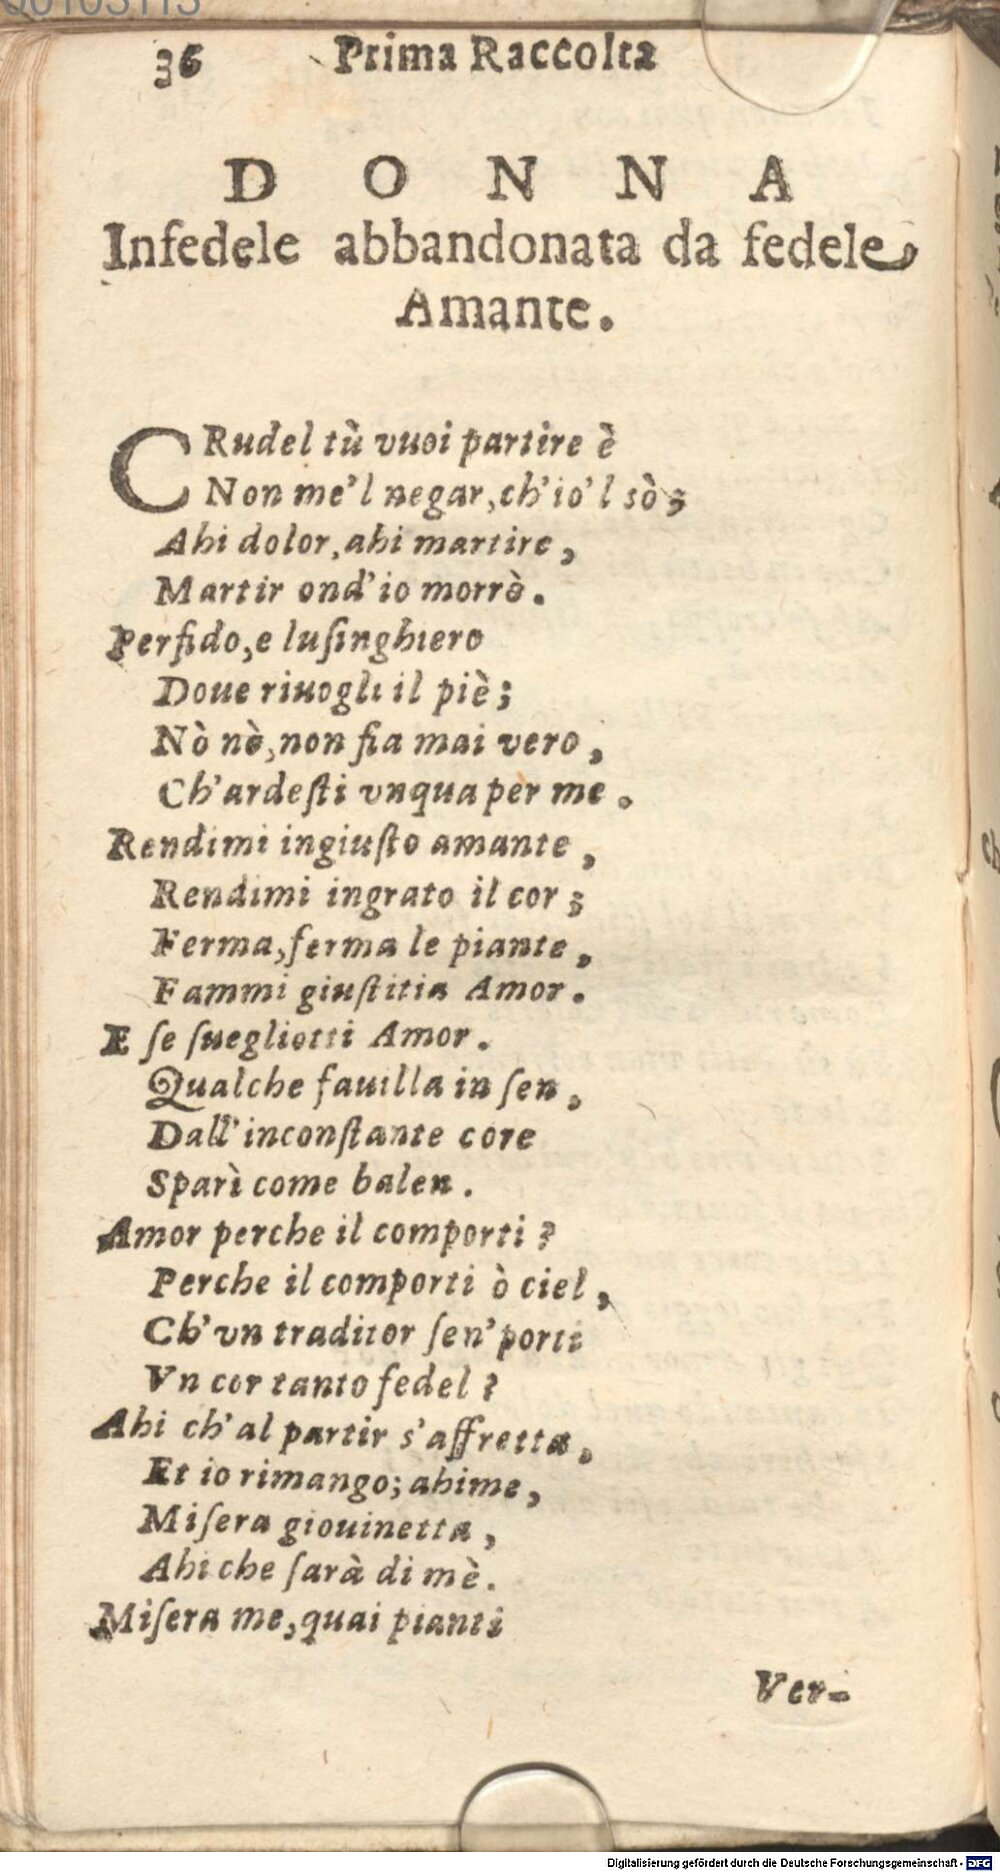 36 Prima Raccolta
D O N N A
Infedele abbandonata da fedele
Amante.
CRudel tù vuoi partire è
Non me'l negar, ch'io'l sò;
Ahi dolor, ahi martire,
Martir ond'io morrò.
Perfido, e luſinghiero
Doue riuogli il piè;
Nò nò, non fia mai vero,
Ch'ardeſti vnqua per me.
Rendimi ingiuſto amante,
Rendimi ingrato il cor;
Ferma, ferma le piante,
Fammi giuſtitia Amor.
E ſe ſuegliotti Amor.
Qualche fauilla in ſen,
Dall'inconſtante core
Sparì come balen.
Amor perche il comporti?
Perche il comporti ò ciel,
Ch'vn traditor ſen'porti
Vn cor tanto fedel?
Ahi ch'al partir s'affretta,
Et io rimango; ahime,
Miſera giouinetta,
Ahi che ſarà di mè.
Miſera me, quai pianti
Ver-
Digitalisierung gefördert durch die Deutsche Forschungsgemeinschaft - DFG